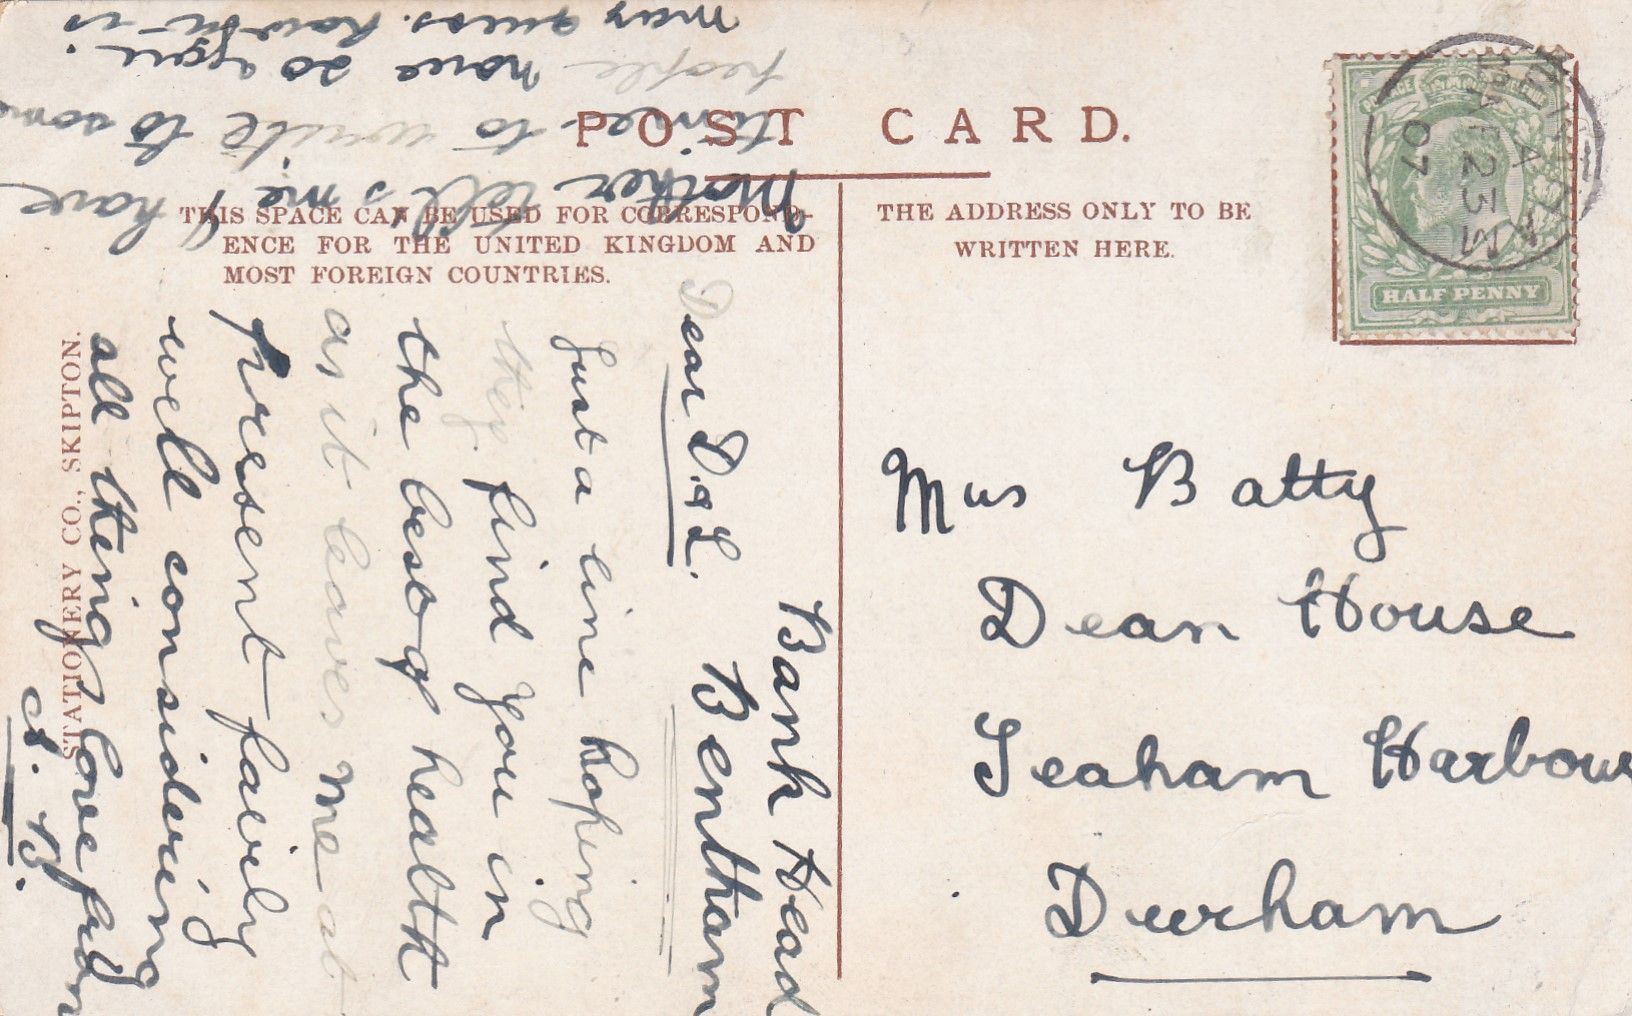 POST CARD.
THIS SPACE CAN BE USED FOR CORRESPOND-
ENCE FOR THE UNITED KINGDOM AND
MOST FOREIGN COUNTRIES.
THE ADDRESS ONLY TO BE
WRITTEN HERE.
HALF PENNY
BENTHAM
AP 23
07
STATIONERY CO., SKIPTON.
Bank Head
Bentham
Dear D. & L.
Just a line hoping
they find you in
the best of health
as it leaves me at
present fairly
well considering
all things love from
A. B.
Mother tells me I have
times to write to some
people have so
may guess how
is
Mrs Batty
Dean House
Seaham Harbour
Durham